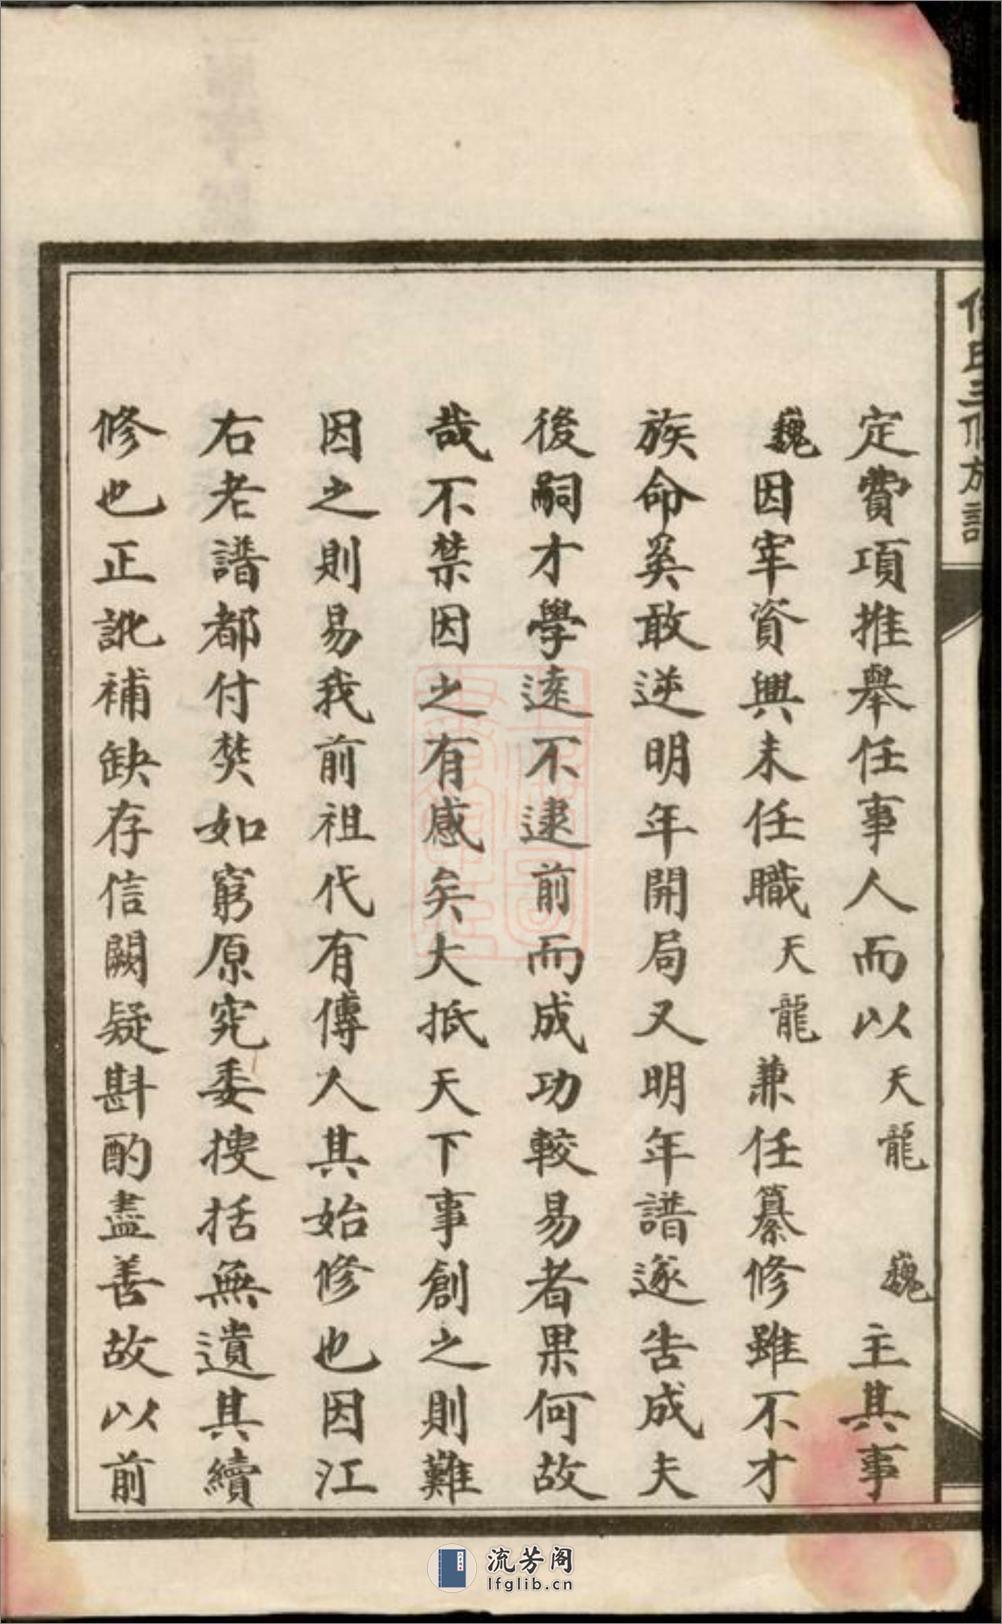 何氏三修族譜
定費項推舉任事人而以天龍 巍主其事
巍因牢資興未任職天龍兼任纂修雖不才
族命奚敢逆明年開局又明年譜遂告成夫
後嗣才學遠不逮前而成功較易者果何故
哉不禁因之有感矣大抵天下事創之則難
因之則易我前祖代有傳人其始修也因江
右老譜都付焚如窮原究委搜括無遺其續
修也正訛補缺存信闕疑斟酌盡善故以前
流芳阁
lfglib.cn